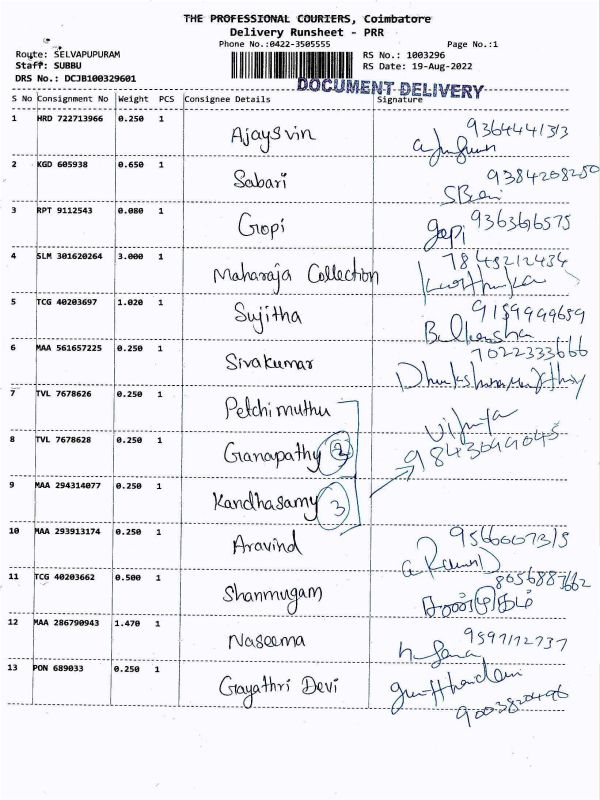 THE PROFESSIONAL COURIERS, Coimbatore
Delivery Runsheet - PRR
Phone No.:0422-3505555 Page No.:1
Route: SELVAPUPURAM RS No.: 1003296
Staff: SUBBU RS Date: 19-Aug-2022
DRS No.: DCJB100329601
DOCUMENT DELIVERY
S No Consignment No Weight PCS Consignee Details Signature
1 HRD 722713966 0.250 1 Ajaysvin 9364441313
2 KGD 605938 0.650 1 Sabari 9384208250
3 RPT 9112543 0.080 1 Gopi gopi 9363616575
4 SLM 301620264 3.000 1 Maharaja Collection 7845212434
5 TCG 40203697 1.020 1 Sujitha 9159999659
6 MAA 561657225 0.250 1 Sivakumar 7022333666
7 TVL 7678626 0.250 1 Petchimuthu
8 TVL 7678628 0.250 1 Ganapathy 2
9 MAA 294314077 0.250 1 Kandhasamy 3
10 MAA 293913174 0.250 1 Aravind 9566007315
11 TCG 40203662 0.500 1 Shanmugam 8056887662
12 MAA 286790943 1.470 1 Naseema
13 PON 689033 0.250 1 Gayathri Devi
9003820496